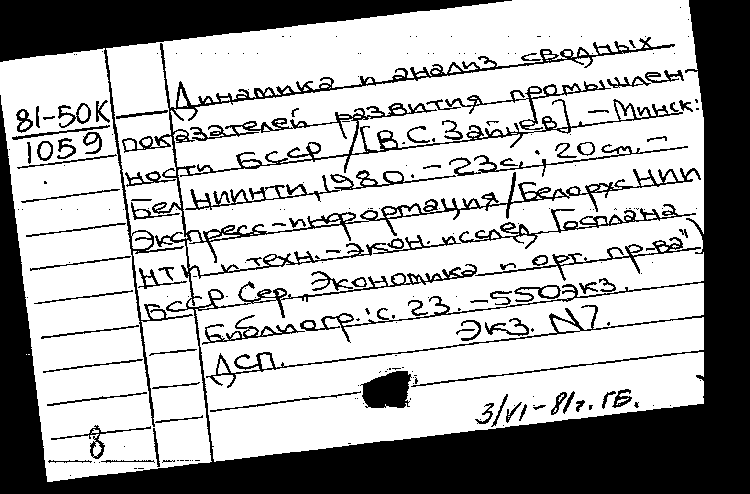 81-50К
1059
Динамика и анализ сводных
показателей развития промышлен-
ности БССР / [В.С. Зайцев]. - Минск:
БелНИИНТИ, 1980. - 23с.; 20 см. -
Экспресс-информация / БелорусНИИ
НТИ и техн.-экон. исслед. Госплана
БССР. Сер. "Экономика и орг. пр-ва")
Библиогр.: с. 23. - 550 экз.
ДСП. Экз. N7.
3/VI-81г. ГБ.
8